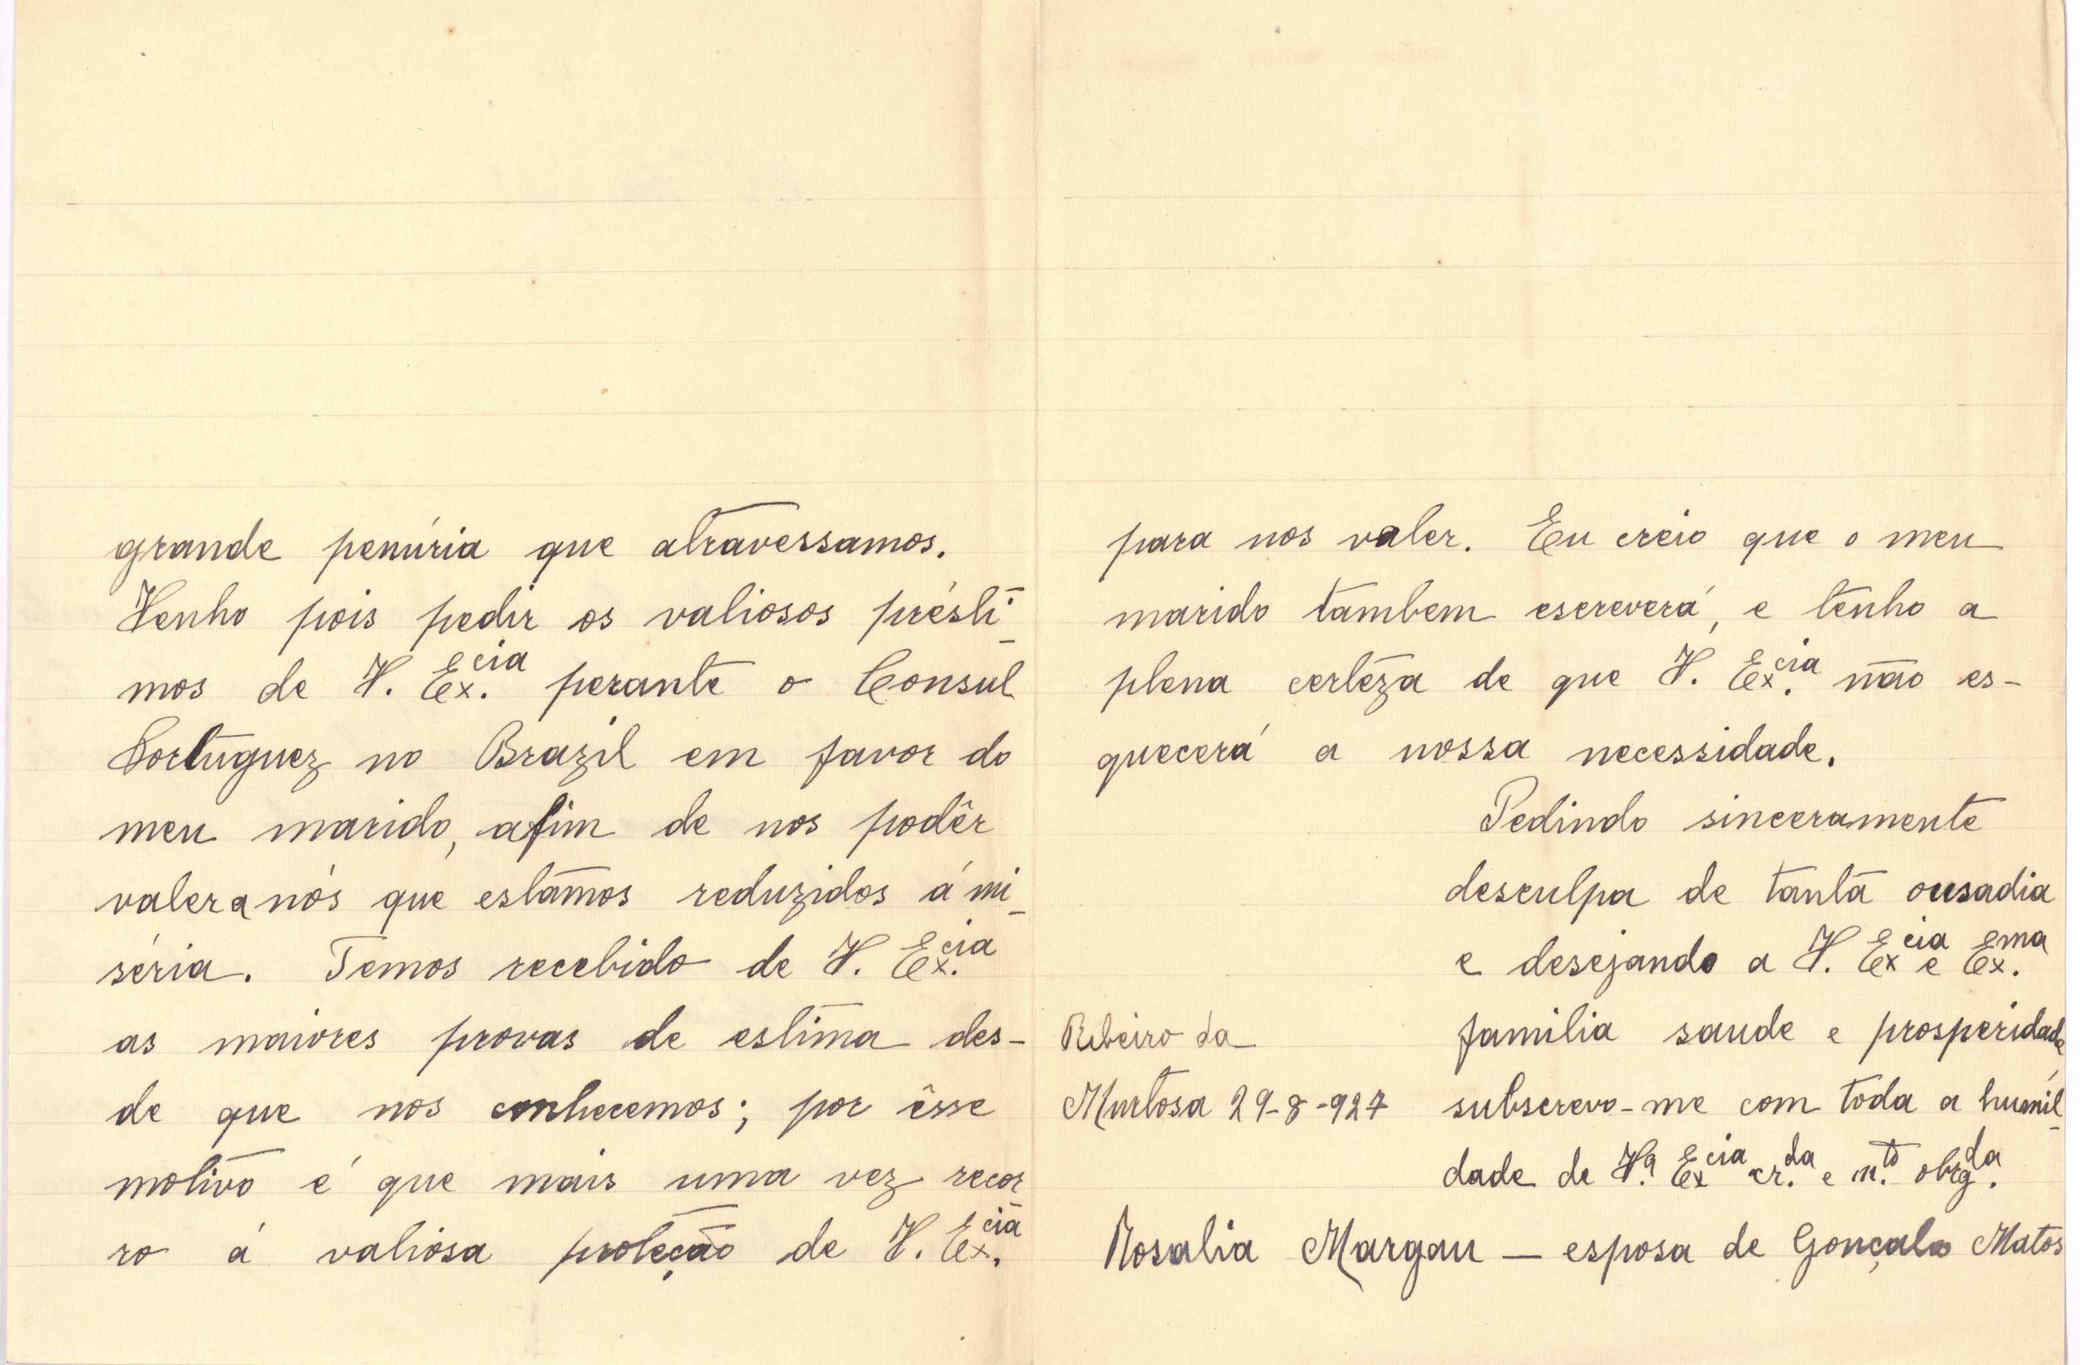 grande penúria que atravessamos.
Venho pois pedir os valiosos présti-
mos de V. Ex.cia perante o Consul
Portuguez no Brazil em favor do
meu marido, afim de nos podêr
valer a nós que estamos reduzidos á mi-
séria. Temos recebido de V. Ex.cia
as maiores provas de estima des-
de que nos conhecemos; por êsse
motivo é que mais uma vez recor-
ro á valiosa proteção de V. Ex.cia
para nos valer. Eu creio que o meu
marido tambem escreverá, e tenho a
plena certeza de que V. Ex.cia não es-
quecerá a nossa necessidade.
Pedindo sinceramente
desculpa de tanta ousadia
e desejando a V. Excia e Ex.ma
familia saude e prosperidade
subscrevo-me com toda a humil-
dade de V.a Excia cr.da e m.to obrg.da
Ribeiro da
Murtosa 29-8-927
Rosalia Margau — esposa de Gonçalo Matos